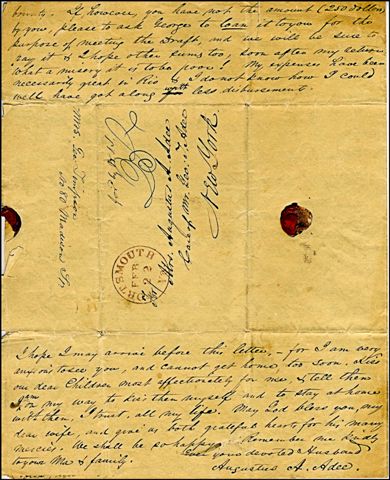 bounty. If however, you have not the amount (250 Dollars
by you, please to ask George to loan it to you for the
purpose of meeting the Draft, and we will be sure to
pay it & I hope other sums too, soon after my return
What a misery it is to be poor! My expenses have been
necessarily great in Rio & I do not know how I could
well have got along with less disbursement.
Mrs Augustus A. Adee
Care of Mr. Geo: T. Adee
New York
PORTSMOUTH
FEB
22
VA
Mrs Geo
No 80 Madison St.
I hope I may arrive before this letter, - for I am very
anxious to see you, and cannot get home, too soon. Kiss
our dear Children most affectionately for me, & tell them
I am on my way to kiss them myself and to stay at home
with them, I trust, all my life. May God bless you, my
dear wife, and give us both grateful hearts for his many
mercies. We shall be so happy. Remember me kindly
to your Ma & family.
Ever your devoted Husband
Augustus A. Adee.